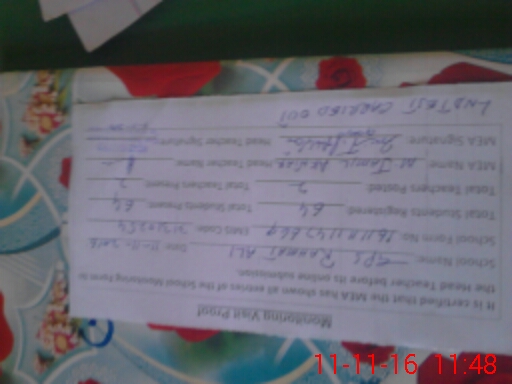 Monitoring Visit Proof
It is certified that the MEA has shown all entries of the School Monitoring form to
the Head Teacher before its online submission.
School Name: GPS RAHMAT ALI Date: 11-11-2016
School Form No: EMIS Code:
Total Students Registered: 64 Total Students Present: 64
Total Teachers Posted: 2 Total Teachers Present: 2
MEA Name: M JAMIL Head Teacher Name:
MEA Signature: Head Teacher Signature:
LND TEST CARRIED OUT
11-11-16 11:48